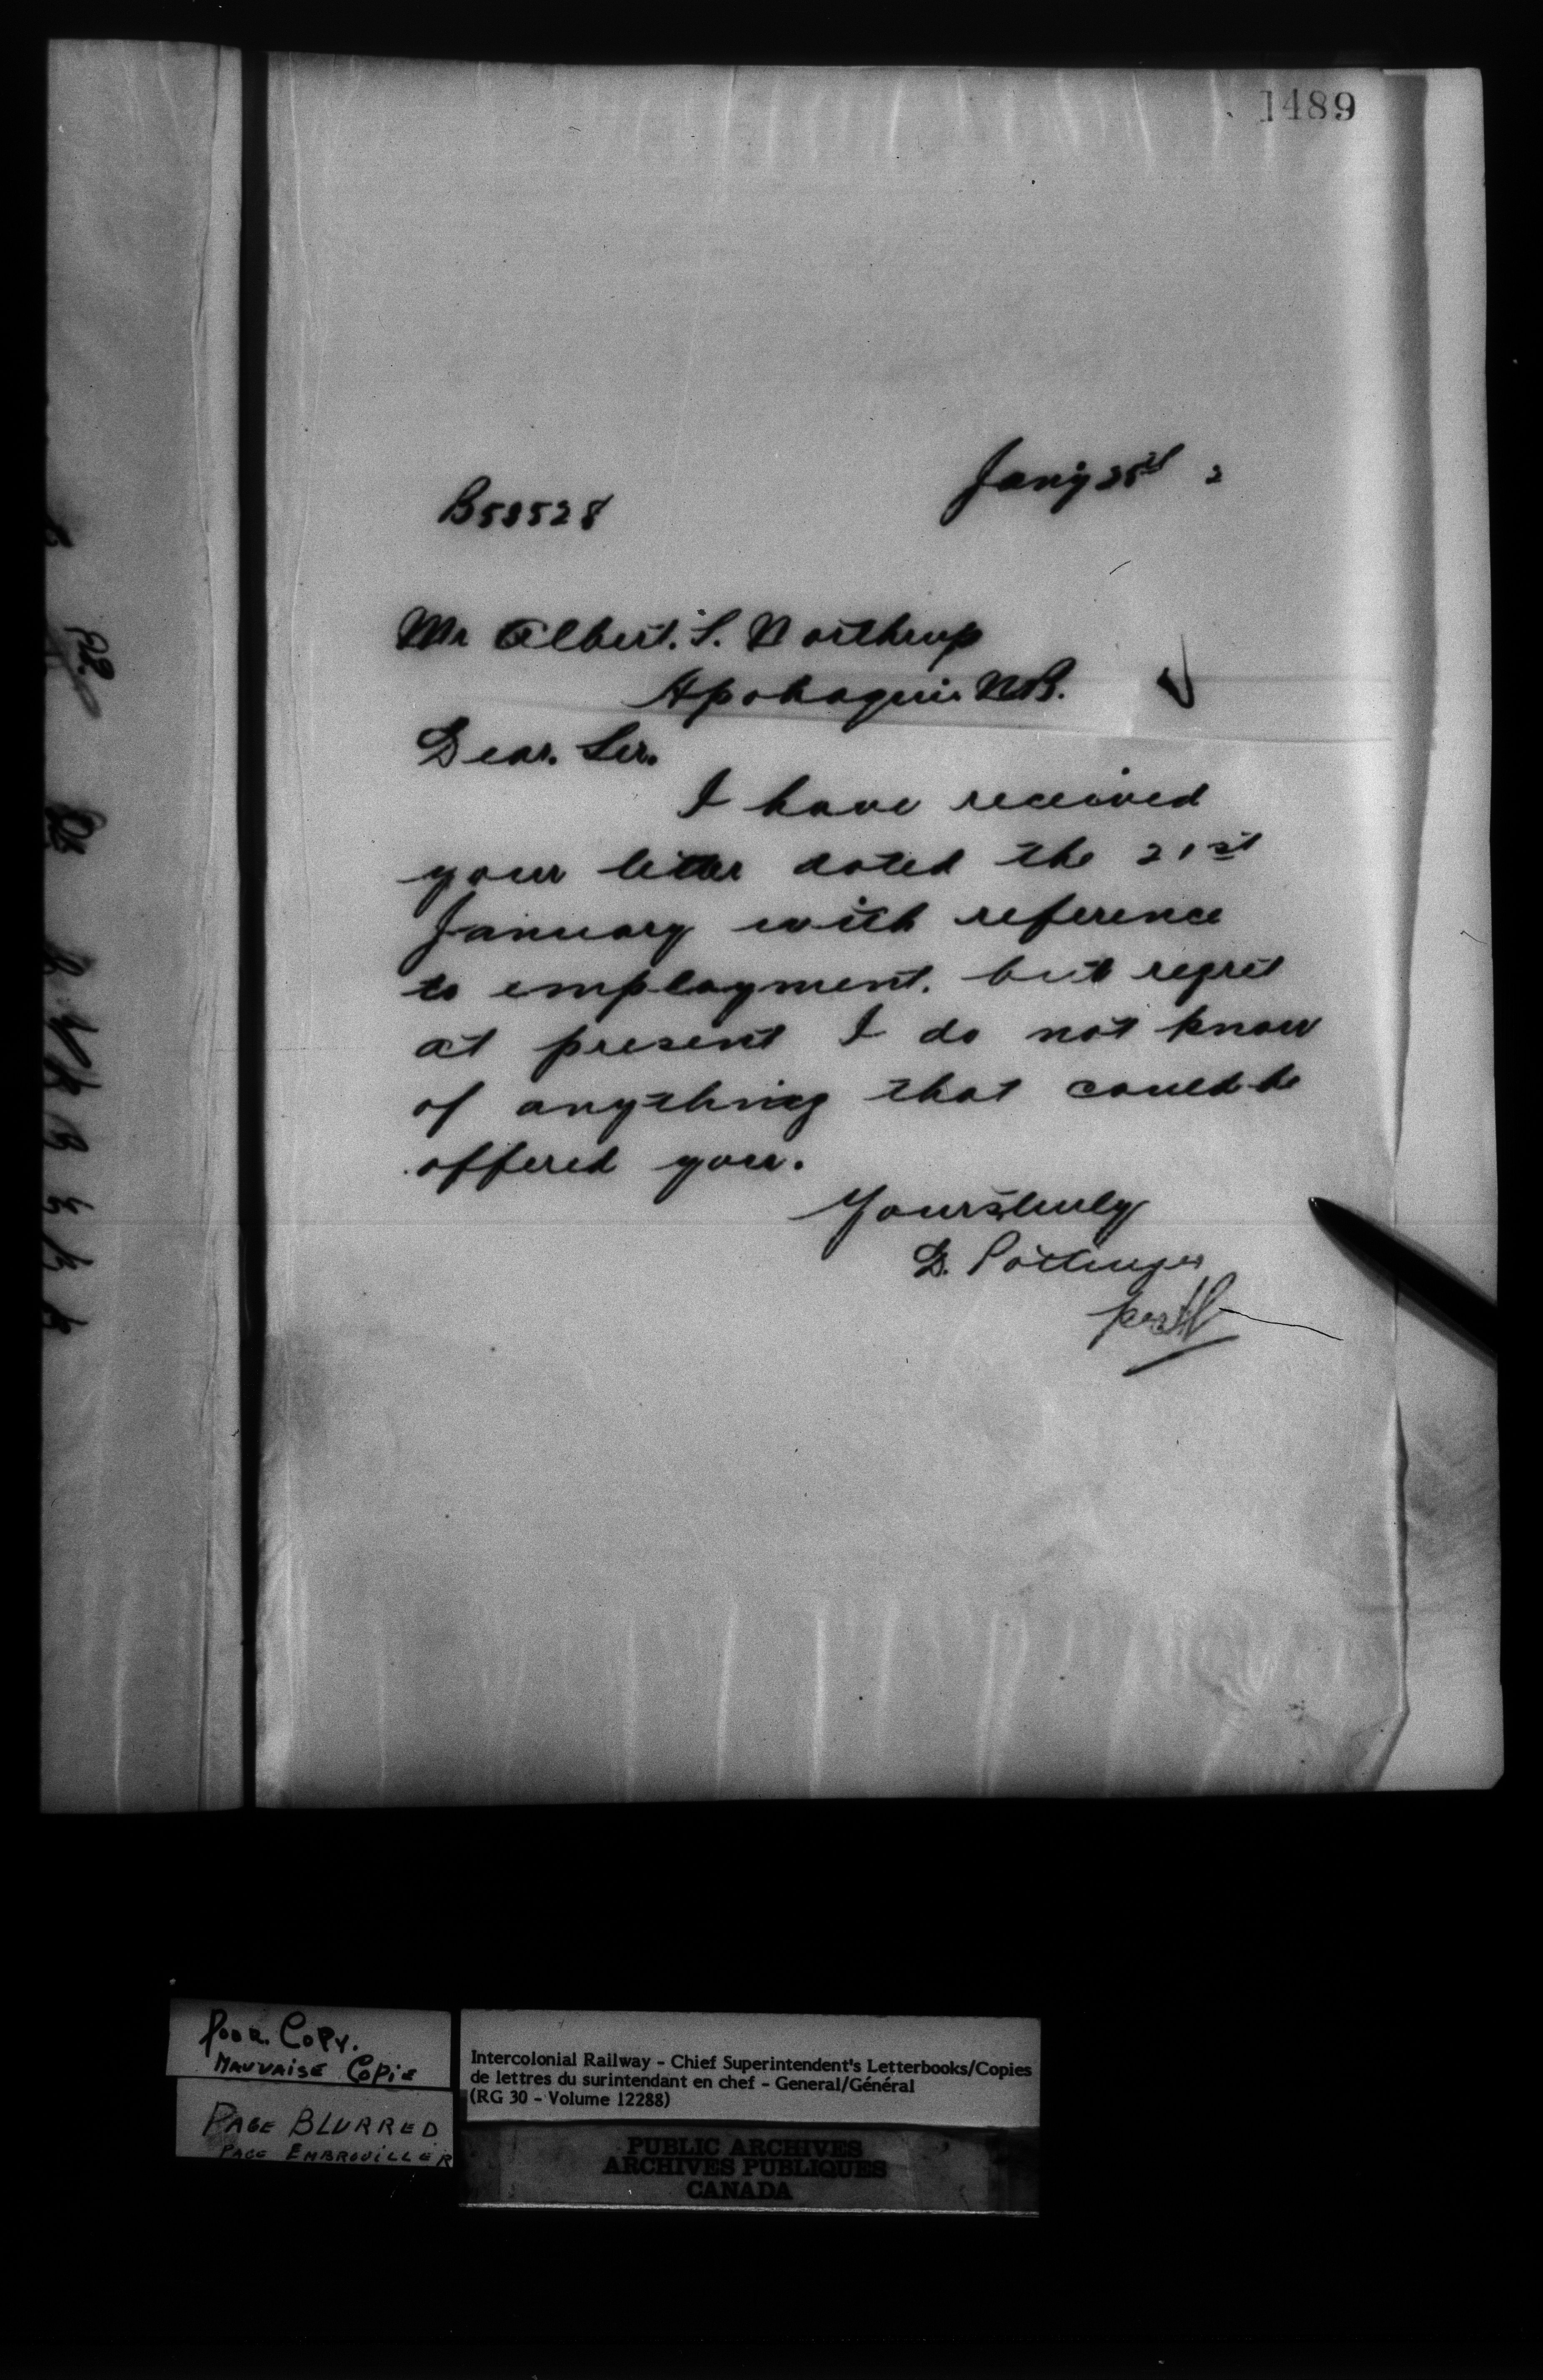 1489
Jany 25th 2
B58528
Mr Albert. S. Northrup
Apohaqui. N.B.
Dear. Sir.
I have received
your letter dated the 21st
January with reference
to employment. but regret
at present I do not know
of anything that could be
offered you.
Yours truly
D. Pottinger
per
Poor. Copy.
Mauvaise Copie
Page Blurred
Page Embrouiller
Intercolonial Railway - Chief Superintendent's Letterbooks/Copies
de lettres du surintendant en chef - General/Général
(RG 30 - Volume 12288)
PUBLIC ARCHIVES
ARCHIVES PUBLIQUES
CANADA